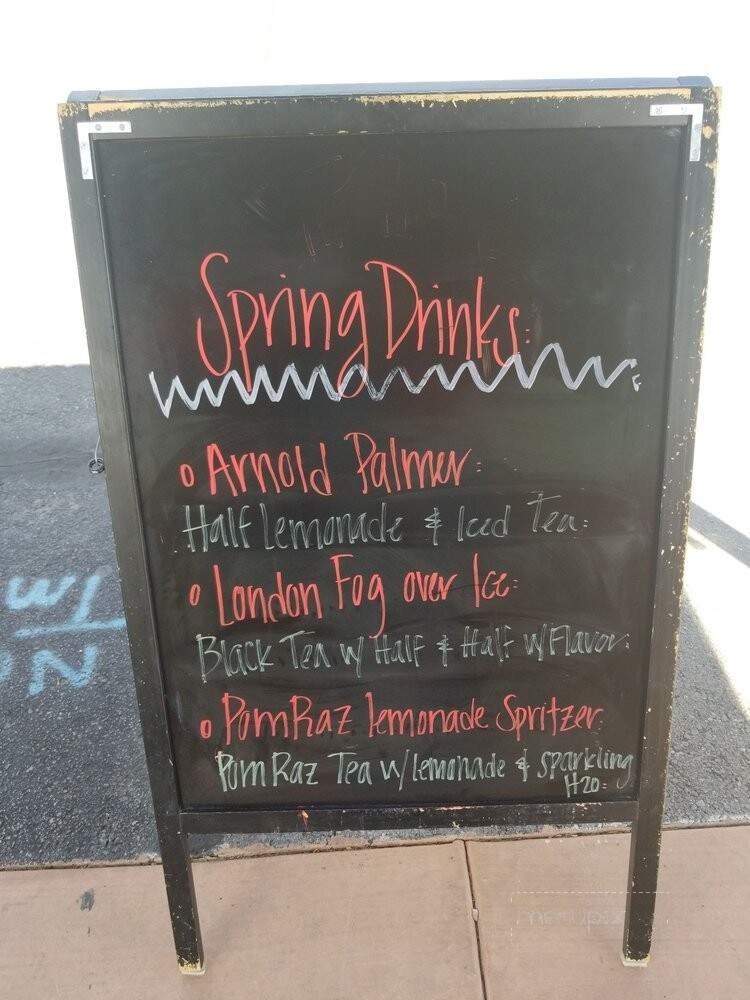 Spring Drinks:
o Arnold Palmer:
Half Lemonade & Iced Tea:
o London Fog over Ice:
Black Tea w/ Half & Half w/Flavor:
o PomRaz lemonade Spritzer:
Pom Raz Tea w/ lemonade & sparkling
H20:
menupix